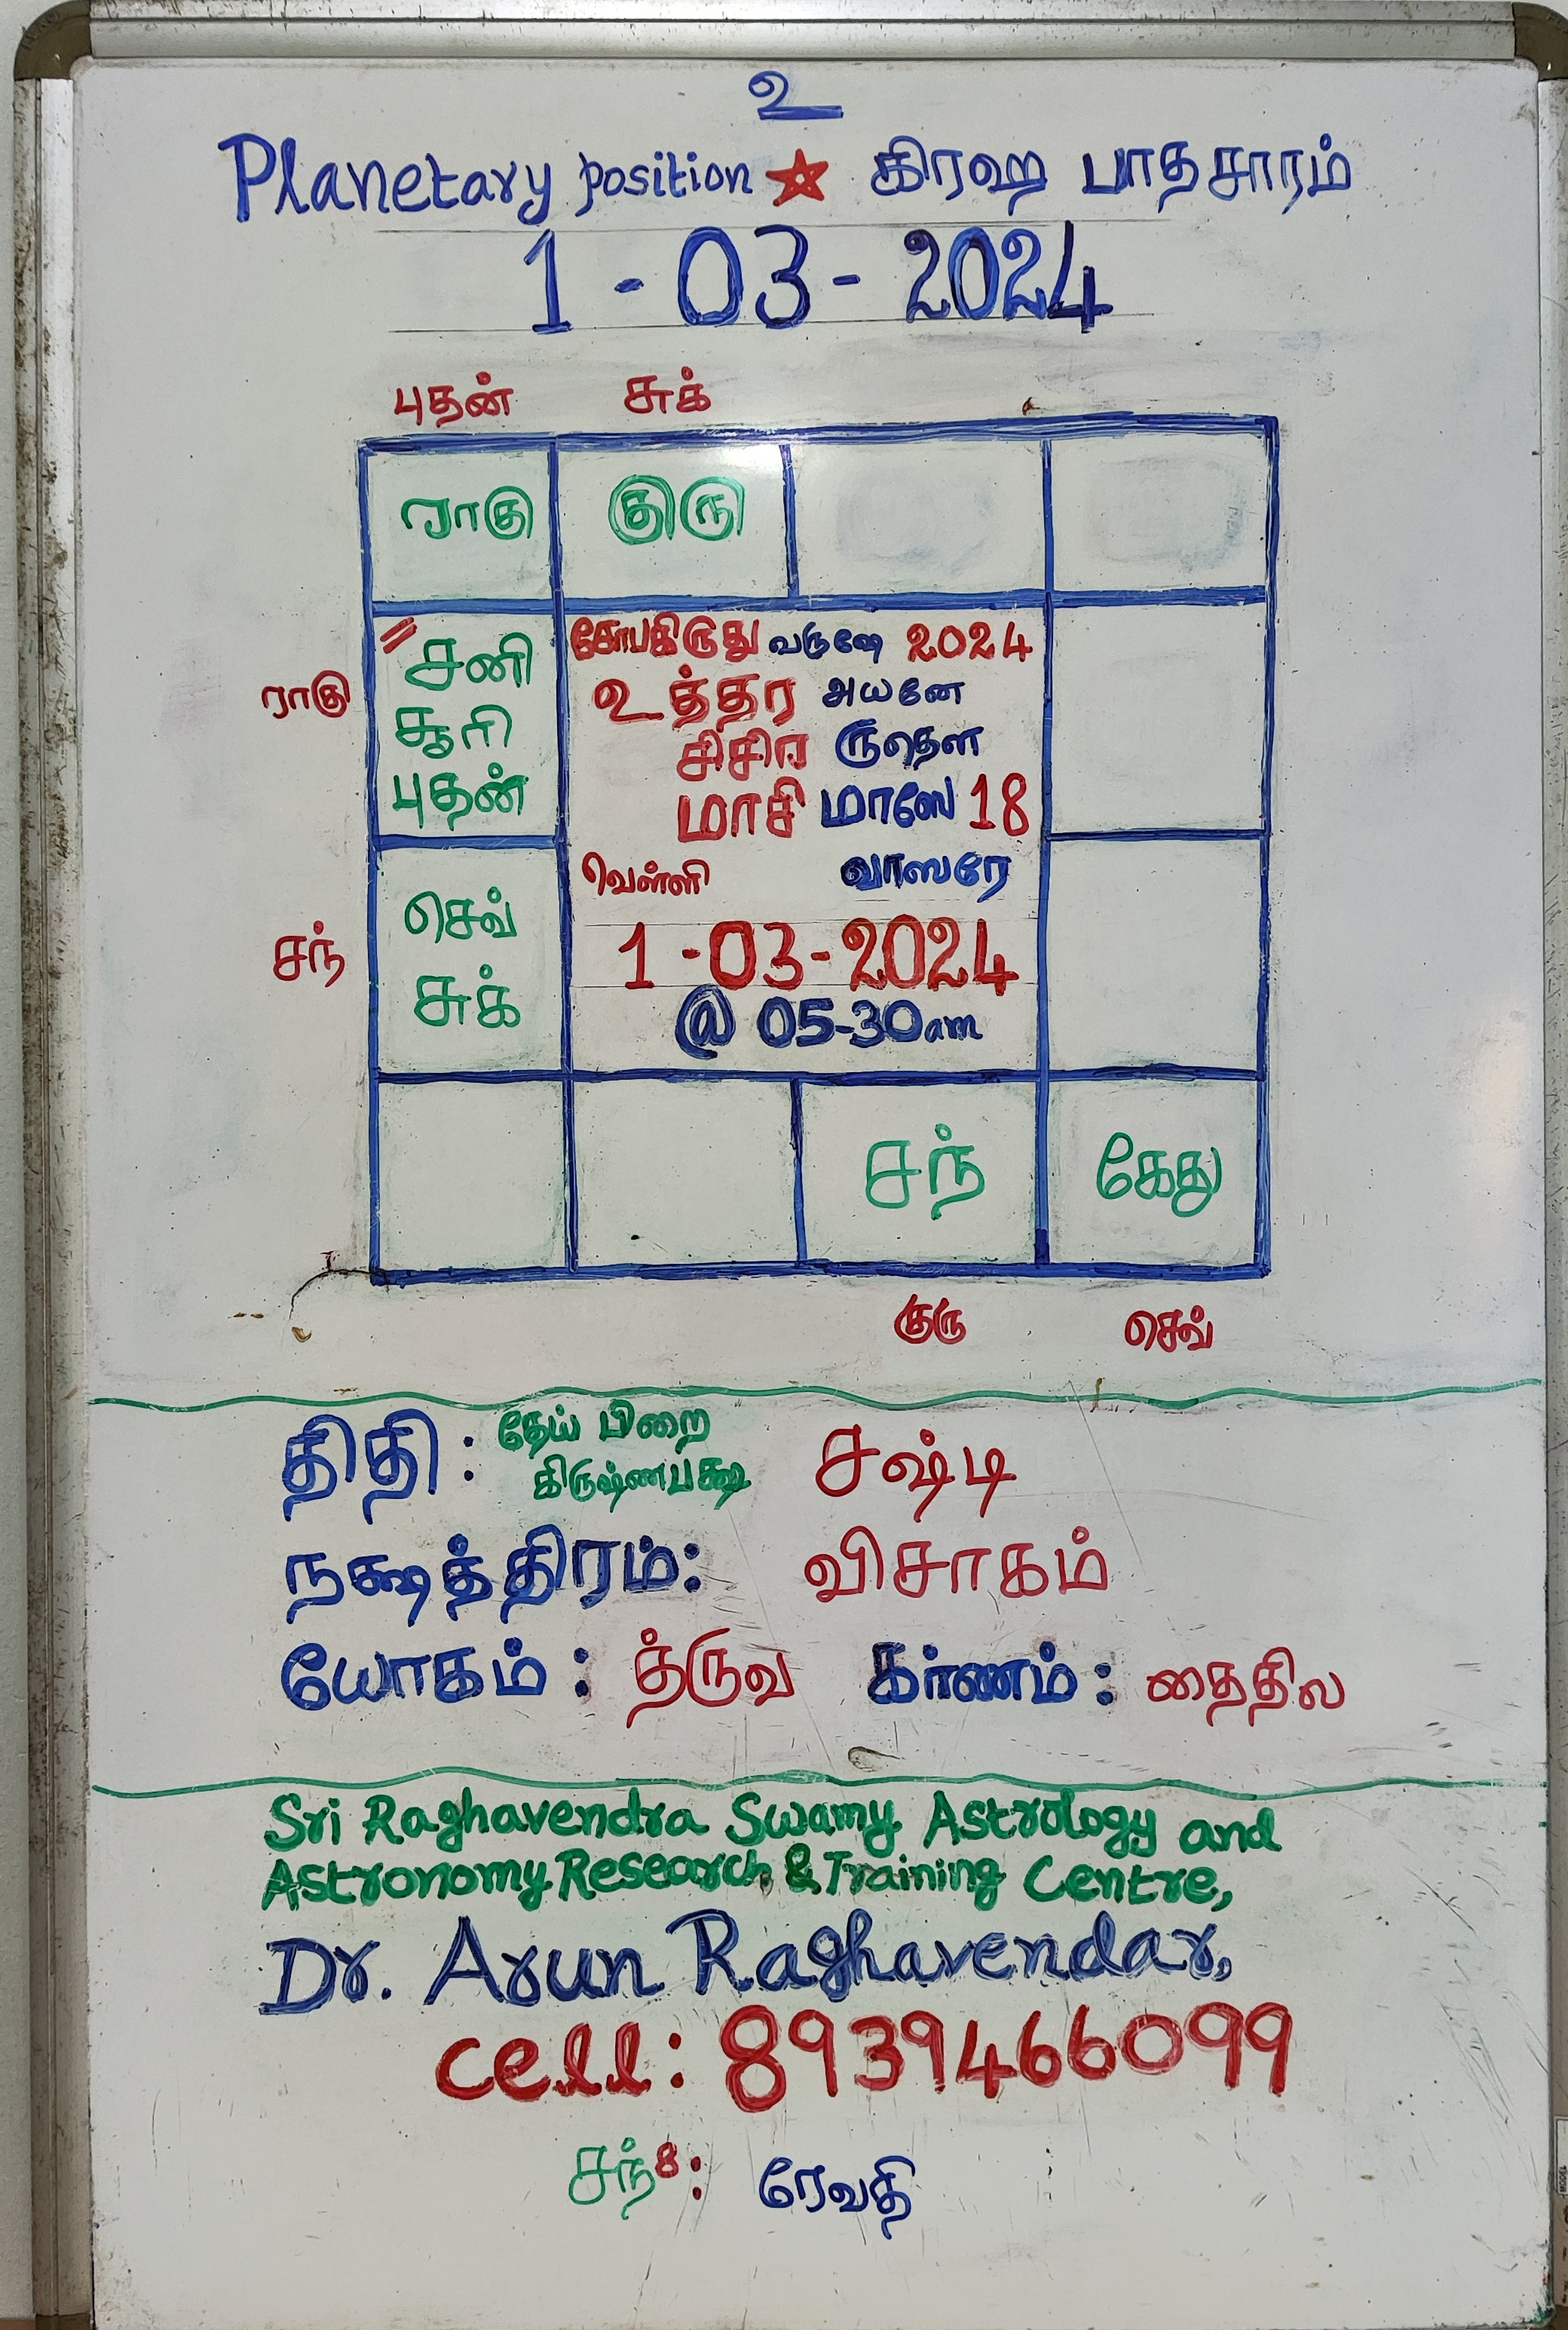 உ
Planetary position ☆ கிரஹ பாதசாரம்
1 - 03 - 2024
புதன் சுக்
ராகு குரு
சனி
சூரி
புதன்
ராகு
கோபகிருது வருஷே 2024
உத்தர அயனே
சிசிர ருதௌ
மாசி மாஸே 18
வெள்ளி வாஸரே
1 - 03 - 2024
@ 05-30am
சந்
செவ்
சுக்
சந் கேது
குரு செவ்
திதி : தேய் பிறை சஷ்டி
கிருஷ்ணபக்ஷ
நக்ஷத்திரம்: விசாகம்
யோகம் : த்ருவ கர்ணம் : தைதில
Sri Raghavendra Swamy Astrology and
Astronomy Research & Training Centre,
Dr. Arun Raghavendar,
cell: 8939466099
சந்8: ரேவதி